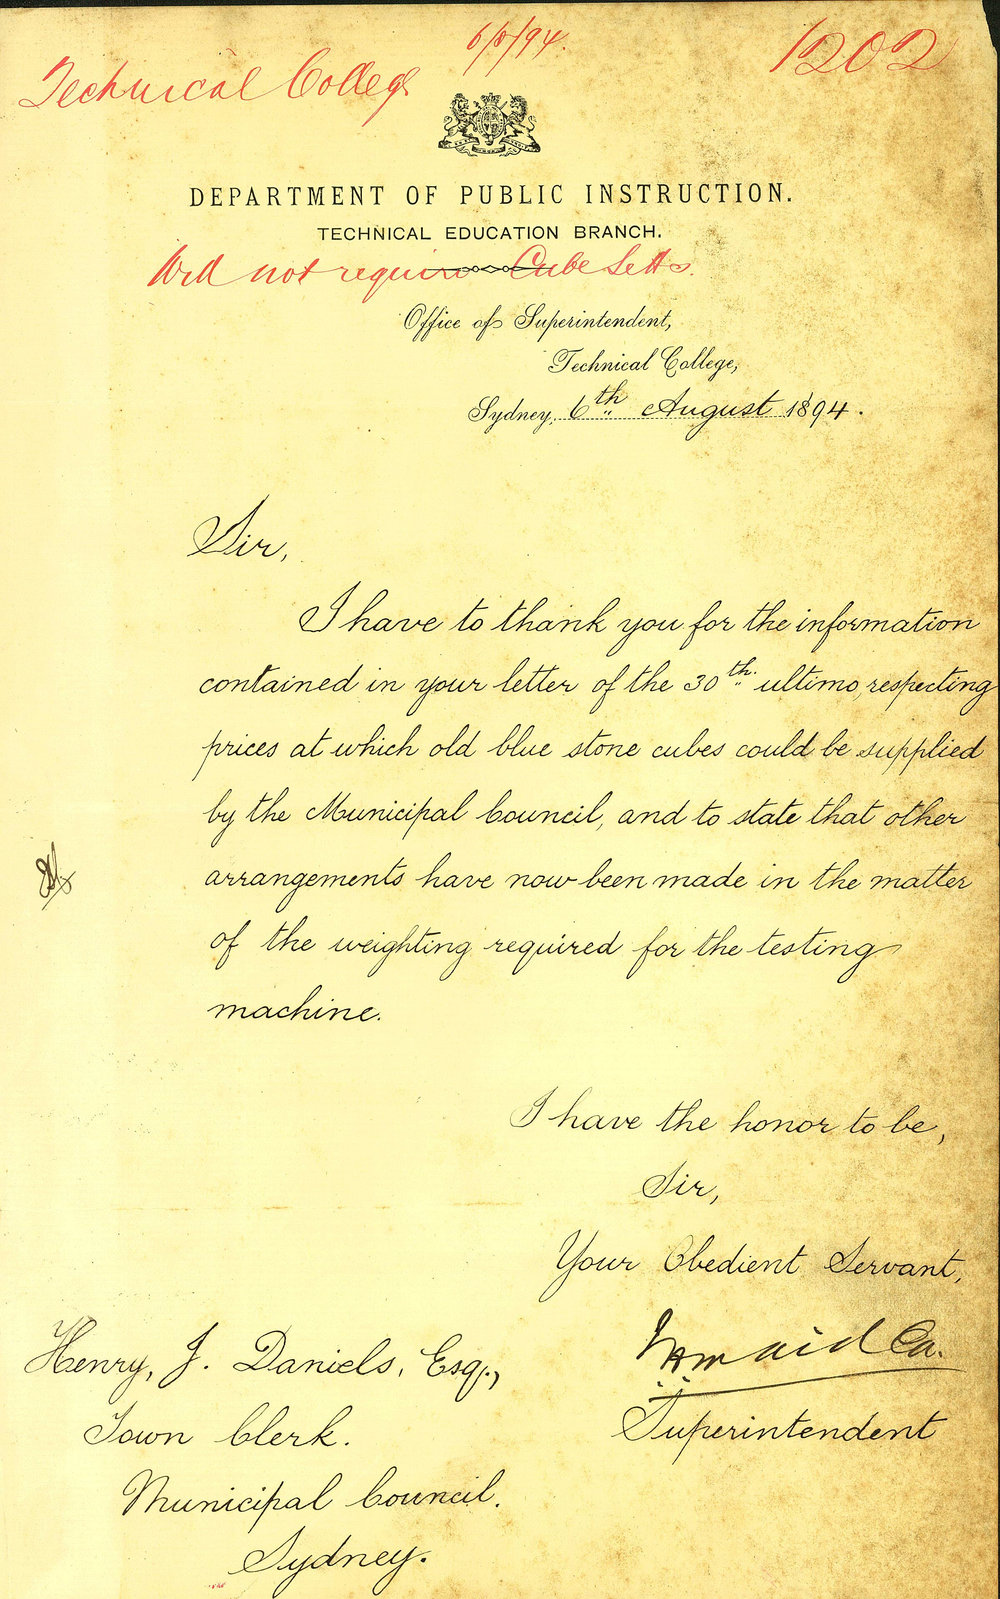 Technical College
6/8/94.
1202
DEPARTMENT OF PUBLIC INSTRUCTION.
TECHNICAL EDUCATION BRANCH.
not require Cube Setts.
Office of Superintendent,
Technical College,
Sydney, 6th August 1894.
Sir,
I have to thank you for the information
contained in your letter of the 30th. ultimo, respecting
prices at which old blue stone cubes could be supplied
by the Municipal Council, and to state that other
arrangements have now been made in the matter
of the weighting required for the testing
machine.
I have the honor to be,
Sir,
Your Obedient Servant,
Superintendent
Henry, J. Daniels, Esq.,
Town Clerk.
Municipal Council.
Sydney.